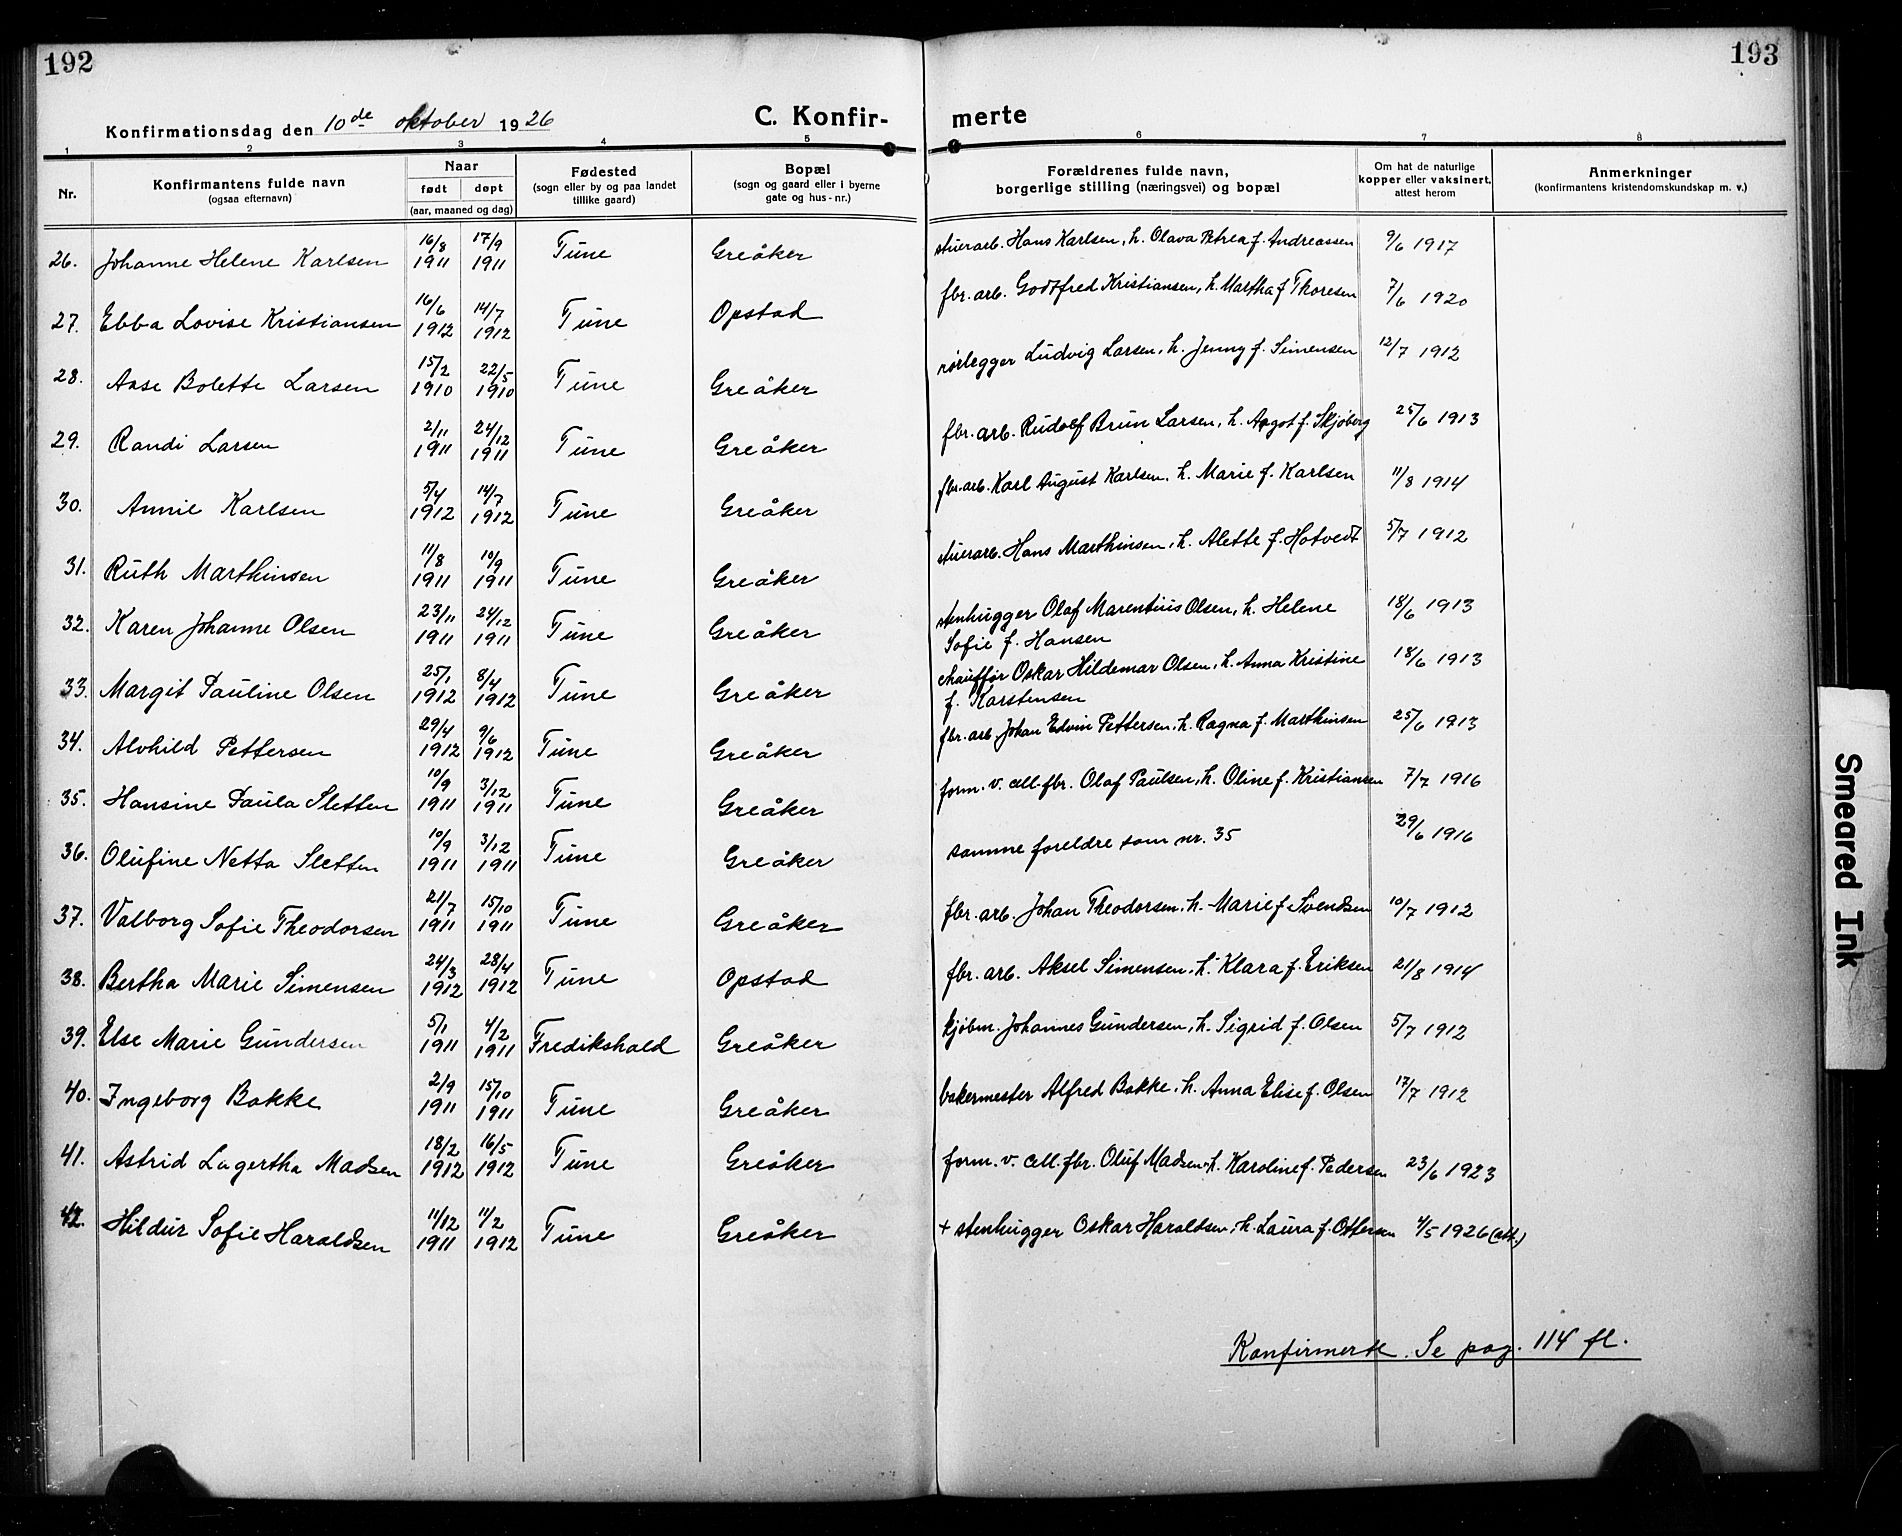 192
193
Konfirmationsdag den 10de oktober 1926
C. Konfir-
merte
1 2 3 4 5 6 7 8
Nr.
Konfirmantens fulde navn
(ogsaa efternavn)
Naar
født døpt
(aar, maaned og dag)
Fødested
(sogn eller by og paa landet
tillike gaard)
Bopæl
(sogn og gaard eller i byerne
gate og hus-nr.)
Forældrenes fulde navn,
borgerlige stilling (næringsvei) og bopæl
Om hat de naturlige
kopper eller vaksinert,
attest herom
Anmerkninger
(konfirmantens kristendomskundskap m. v.)
26. Johanne Helene Karlsen 16/8 1911 17/9 1911 Tune Greåker stuerarb. Hans Karlsen, h. Olava Petrea f. Andreassen 9/6 1917
27. Ebba Lovise Kristiansen 16/6 1912 14/7 1912 Tune Opstad fbr. arb. Godtfred Kristiansen, h. Martha f Thoresen 7/6 1920
28. Aase Bolette Larsen 15/2 1910 22/5 1910 Tune Greåker rørlegger Ludvig Larsen, h. Jenny f. Simensen 12/7 1912
29. Randi Larsen 2/11 1911 24/12 1911 Tune Greåker fbr. arb. Rudolf Brun Larsen, h. Aagot f. Skjøberg 25/6 1913
30. Annie Karlsen 5/4 1912 14/7 1912 Tune Greåker fbr. arb. Karl August Karlsen, h. Marie f. Karlsen 11/8 1914
31. Ruth Marthinsen 11/8 1911 10/9 1911 Tune Greåker stuerarb. Hans Marthinsen, h. Alette f. Hotvedt 5/7 1912
32. Karen Johanne Olsen 23/11 1911 24/12 1911 Tune Greåker stenhugger Olaf Marentius Olsen, h. Helene
Sofie f. Hansen 18/6 1913
33. Margit Pauline Olsen 25/1 1912 8/4 1912 Tune Greåker chauffør Oskar Hildemar Olsen, h. Anna Kristine
f. Karstensen 18/6 1913
34. Alvhild Pettersen 29/4 1912 9/6 1912 Tune Greåker fbr. arb. Johan Edvin Pettersen, h. Ragna f. Marthinsen 25/6 1913
35. Hansine Paula Sletten 10/9 1911 3/12 1911 Tune Greåker form. v. cell. fbr. Olaf Paulsen, h. Oline f. Kristiansen 7/7 1916
36. Olufine Netta Sletten 10/9 1911 3/12 1911 Tune Greåker samme foreldre som nr. 35 29/6 1916
37. Valborg Sofie Theodorsen 21/7 1911 15/10 1911 Tune Greåker fbr. arb. Johan Theodorsen, h. Marie f Svendsen 10/7 1912
38. Bertha Marie Simensen 24/3 1912 28/4 1912 Tune Opstad fbr. arb. Aksel Simensen, h. Klara f. Eriksen 21/8 1914
39. Else Marie Gundersen 5/1 1911 4/2 1911 Fredikshald Greåker kjøbm. Johannes Gundersen, h. Sigrid f. Olsen 5/7 1912
40. Ingeborg Bakke 2/9 1911 15/10 1911 Tune Greåker bakermester Alfred Bakke, h. Anna Elise f. Olsen 17/7 1912
41. Astrid Lagertha Madsen 18/2 1912 16/5 1912 Tune Greåker form. v. cell. fbr. Oluf Madsen, h. Karoline f. Pedersen 23/6 1923
42. Hildur Sofie Haraldsen 11/12 1911 11/2 1912 Tune Greåker + stenhugger Oskar Haraldsen, h. Laura f. Ottersen 4/5 1926 (att.)
Konfirmerte. Se pag. 114 fl.
Smeared Ink